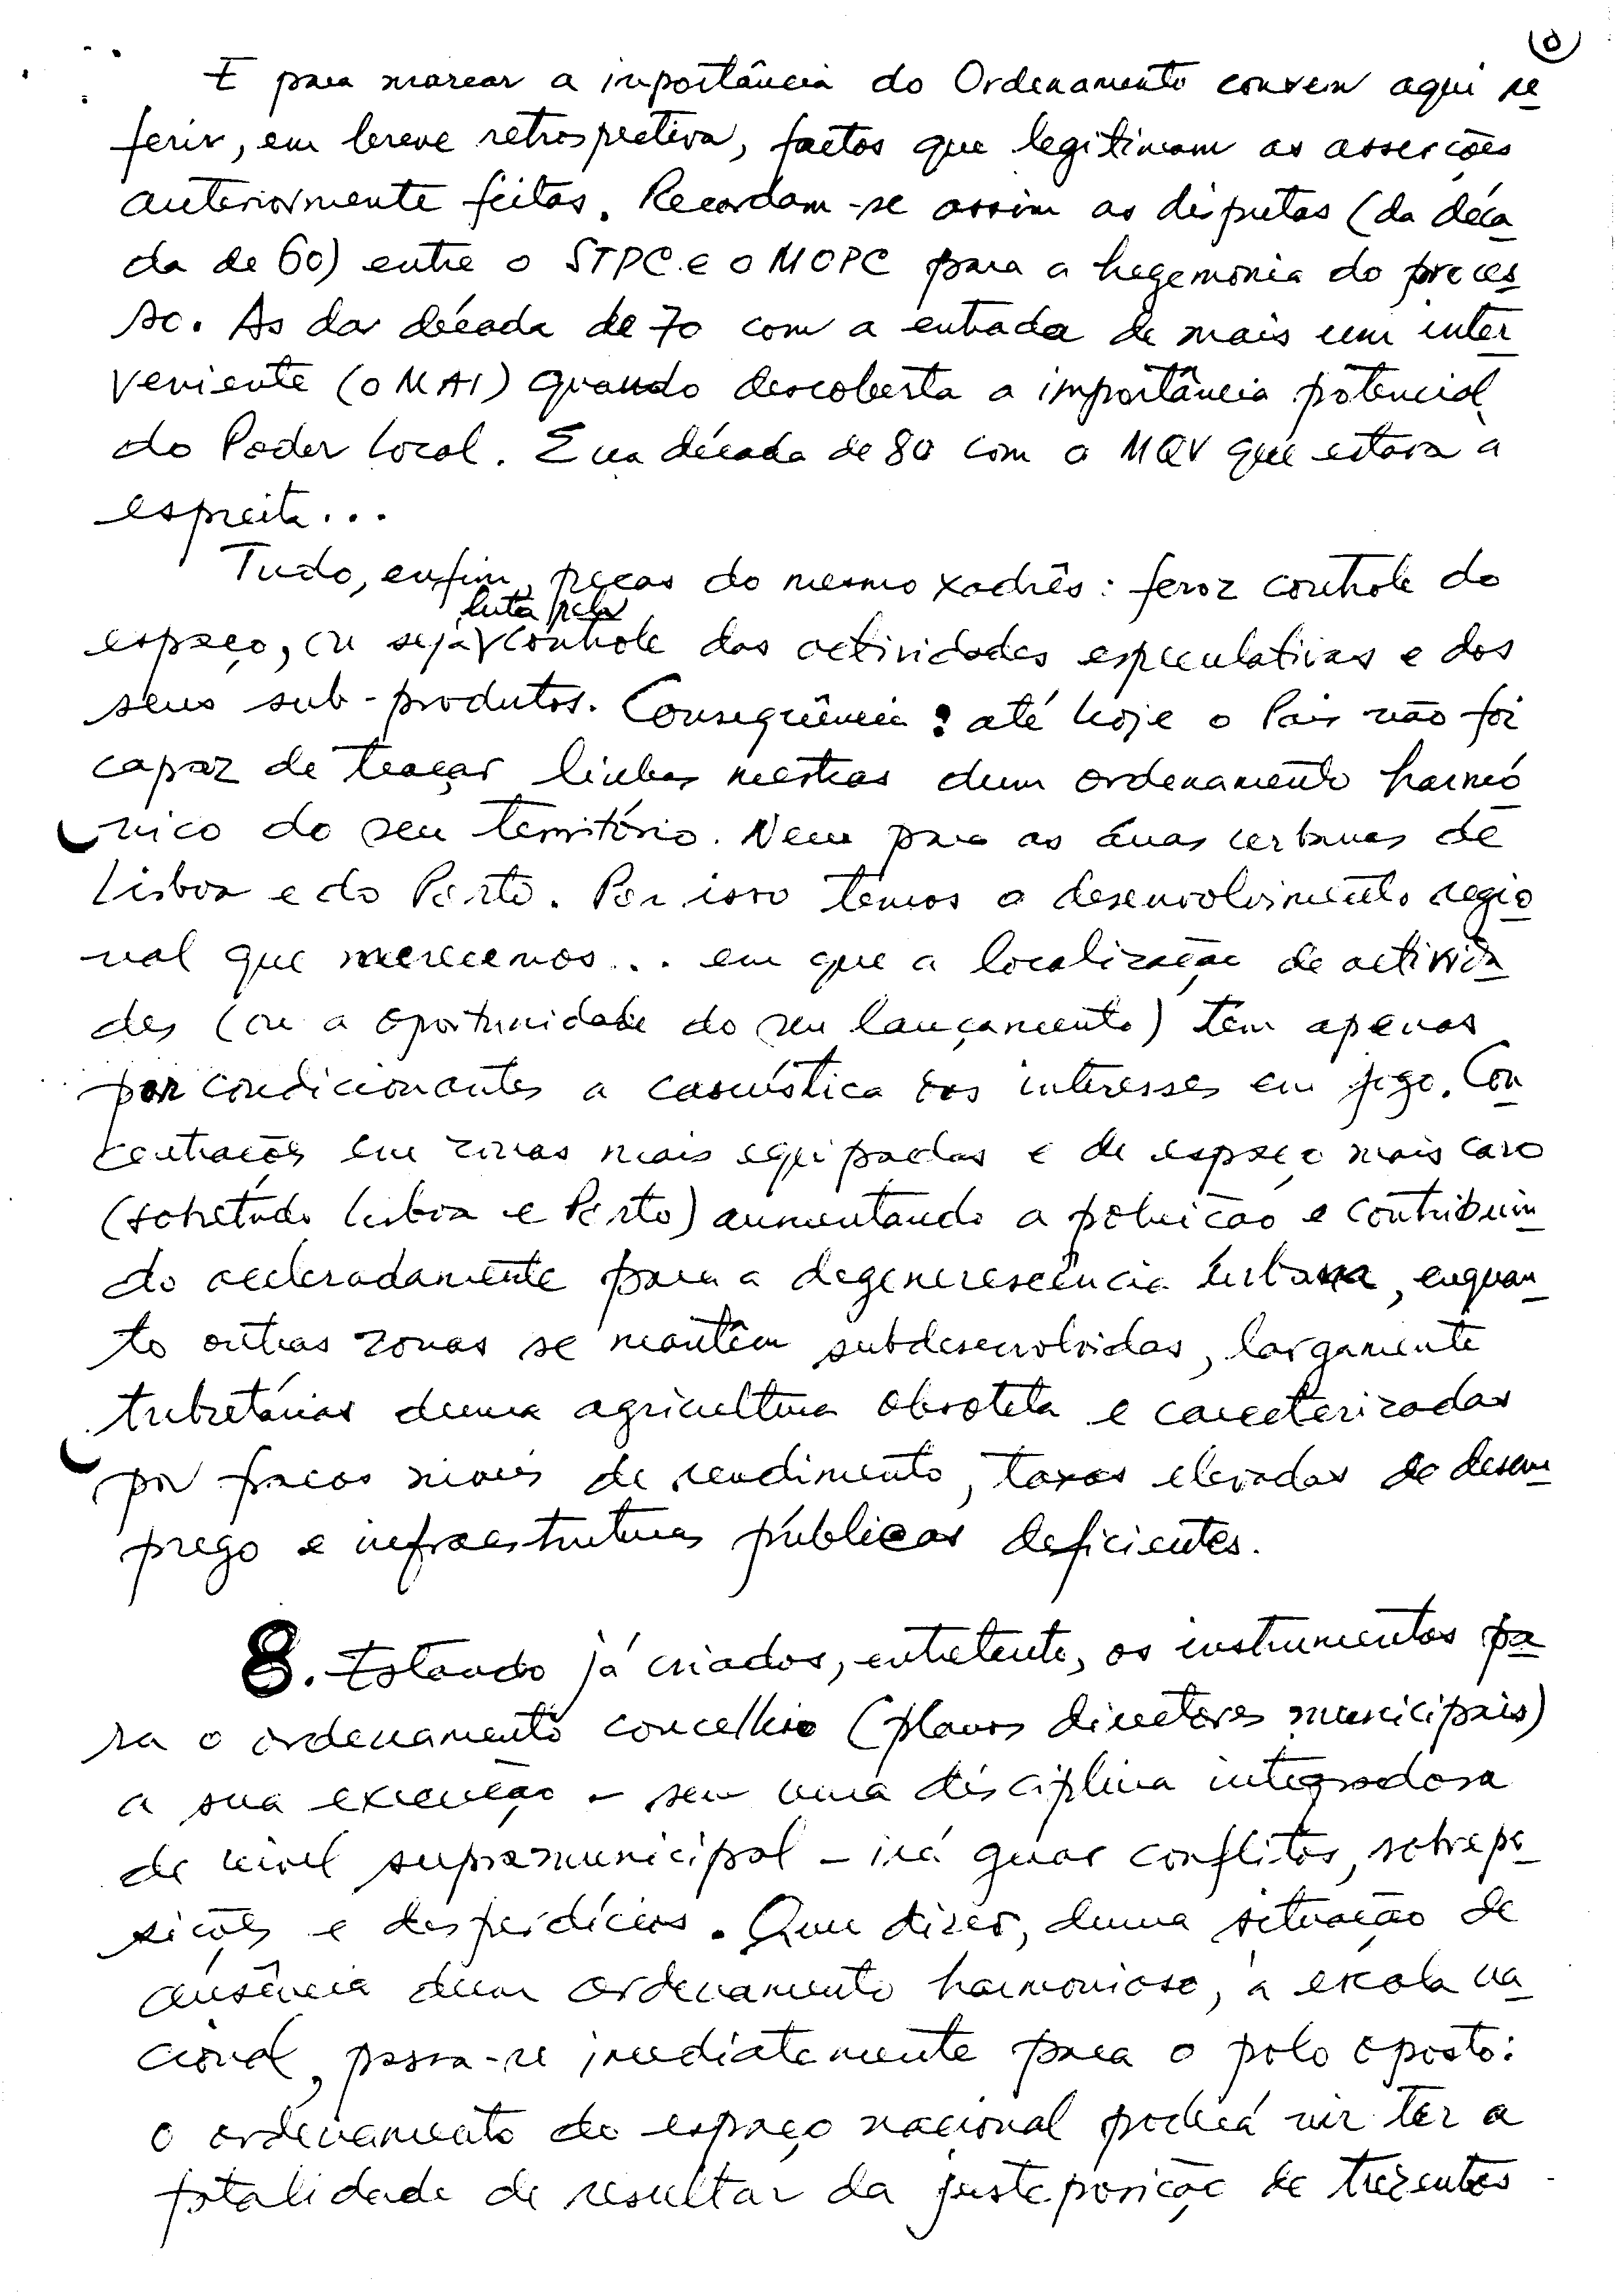 E para marcar a importância do Ordenamento convem aqui re
ferir, em breve retrospectiva, factos que legitimam as asserções
anteriormente feitas. Recordam-se assim as disputas (da déca
da de 60) entre o STPC e o MOPC para a hegemonia do proces
so. As da década de 70 com a entrada de mais um inter
veniente (o MAI) quando descoberta a importância potencial
do Poder Local. E na década de 80 com o MQV que estava à
espreita...
Tudo, enfim, peças do mesmo xadrês: feroz controle do
luta pelo
espaço, ou seja controle das actividades especulativas e dos
seus sub-produtos. Consequência: até hoje o País não foi
capaz de traçar linhas mestras dum ordenamento harmó
nico do seu território. Nem para as áreas urbanas de
Lisboa e do Porto. Por isso temos o desenvolvimento regio
nal que merecemos... em que a localização de activida
des (ou a oportunidade do seu lançamento) tem apenas
por condicionantes a casuística dos interesses em jogo. Con
centrações em zonas mais equipadas e de espaço mais caro
(sobretudo Lisboa e Porto) aumentando a poluição e contribuin
do aceleradamente para a degenerescência urbana, enquan
to outras zonas se mantêm subdesenvolvidas, largamente
tributárias duma agricultura obsoleta e caracterizadas
por fracos níveis de rendimento, taxas elevadas de desem
prego e infraestruturas públicas deficientes.
8. Estando já criados, entretanto, os instrumentos pa
ra o ordenamento concelhio (planos directores municipais)
a sua execução - sem uma disciplina integradora
de nível supramunicipal - irá gerar conflitos, sobrepo
sições e desperdícios. Quer dizer, duma situação de
ausência dum ordenamento harmonioso, à escala na
cional, passa-se imediatamente para o polo oposto:
o ordenamento do espaço nacional poderá vir ter a
fatalidade de resultar da justaposição de trezentos